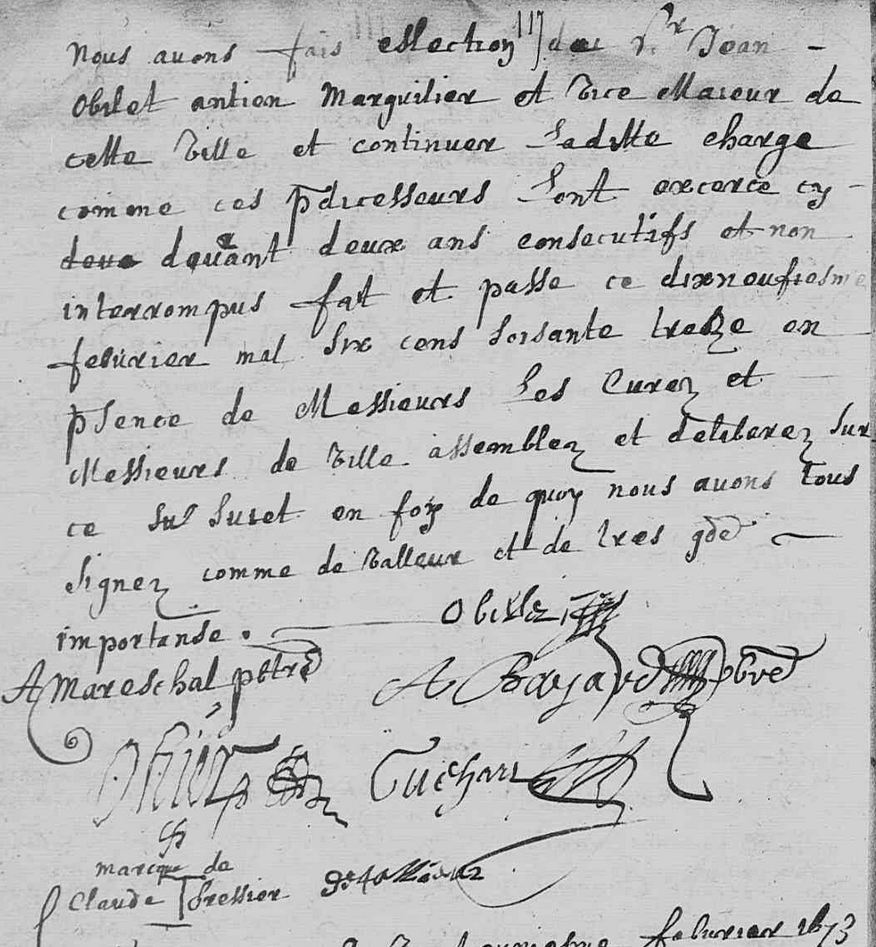 nous avons fais esllection de Sr Jean -
Obilet antien Marguilier et Vice Maieur de
cette Ville et continuer Laditte charge
comme ces pdicesseurs Lont excerce cy -
devant deux ans consecutifs et non
interrompus fat et passe ce dixneufiesme
feburier mil Six cens Soisante treize en
psence de Messieurs Les Curez et
Messieurs de Ville assemblez et deliberez Sur
ce Suiet en foy de quoy nous avons tous
Signez comme de valleur et de tres gde
importanse.
Obillet
A Mareschal pbtre
A Bayard pbre
Guichart
marque de
Claude Tressier
februrier 1673